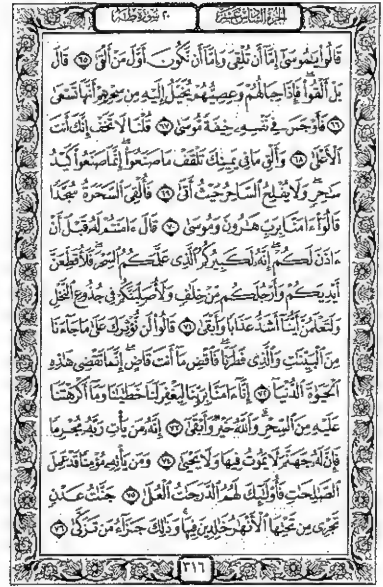 الجزء السادس عشر
٢٠ سورة طه
قَالُوا۟ يَٰمُوسَىٰٓ إِمَّآ أَن تُلْقِىَ وَإِمَّآ أَن نَّكُونَ أَوَّلَ مَنْ أَلْقَىٰ ٦٥ قَالَ
بَلْ أَلْقُوا۟ ۖ فَإِذَا حِبَالُهُمْ وَعِصِيُّهُمْ يُخَيَّلُ إِلَيْهِ مِن سِحْرِهِمْ أَنَّهَا تَسْعَىٰ
٦٦ فَأَوْجَسَ فِى نَفْسِهِۦ خِيفَةً مُّوسَىٰ ٦٧ قُلْنَا لَا تَخَفْ إِنَّكَ أَنتَ
ٱلْأَعْلَىٰ ٦٨ وَأَلْقِ مَا فِى يَمِينِكَ تَلْقَفْ مَا صَنَعُوٓا۟ ۖ إِنَّمَا صَنَعُوا۟ كَيْدُ
سَٰحِرٍ ۖ وَلَا يُفْلِحُ ٱلسَّاحِرُ حَيْثُ أَتَىٰ ٦٩ فَأُلْقِىَ ٱلسَّحَرَةُ سُجَّدًا
قَالُوٓا۟ ءَامَنَّا بِرَبِّ هَٰرُونَ وَمُوسَىٰ ٧٠ قَالَ ءَامَنتُمْ لَهُۥ قَبْلَ أَنْ
ءَاذَنَ لَكُمْ ۖ إِنَّهُۥ لَكَبِيرُكُمُ ٱلَّذِى عَلَّمَكُمُ ٱلسِّحْرَ ۖ فَلَأُقَطِّعَنَّ
أَيْدِيَكُمْ وَأَرْجُلَكُم مِّنْ خِلَٰفٍ وَلَأُصَلِّبَنَّكُمْ فِى جُذُوعِ ٱلنَّخْلِ
وَلَتَعْلَمُنَّ أَيُّنَآ أَشَدُّ عَذَابًا وَأَبْقَىٰ ٧١ قَالُوا۟ لَن نُّؤْثِرَكَ عَلَىٰ مَا جَآءَنَا
مِنَ ٱلْبَيِّنَٰتِ وَٱلَّذِى فَطَرَنَا ۖ فَٱقْضِ مَآ أَنتَ قَاضٍ ۖ إِنَّمَا تَقْضِى هَٰذِهِ
ٱلْحَيَوٰةَ ٱلدُّنْيَآ ٧٢ إِنَّآ ءَامَنَّا بِرَبِّنَا لِيَغْفِرَ لَنَا خَطَٰيَٰنَا وَمَآ أَكْرَهْتَنَا
عَلَيْهِ مِنَ ٱلسِّحْرِ ۗ وَٱللَّهُ خَيْرٌ وَأَبْقَىٰٓ ٧٣ إِنَّهُۥ مَن يَأْتِ رَبَّهُۥ مُجْرِمًا
فَإِنَّ لَهُۥ جَهَنَّمَ لَا يَمُوتُ فِيهَا وَلَا يَحْيَىٰ ٧٤ وَمَن يَأْتِهِۦ مُؤْمِنًا قَدْ عَمِلَ
ٱلصَّٰلِحَٰتِ فَأُو۟لَٰٓئِكَ لَهُمُ ٱلدَّرَجَٰتُ ٱلْعُلَىٰ ٧٥ جَنَّٰتُ عَدْنٍ
تَجْرِى مِن تَحْتِهَا ٱلْأَنْهَٰرُ خَٰلِدِينَ فِيهَا ۚ وَذَٰلِكَ جَزَآءُ مَن تَزَكَّىٰ ٧٦
٣١٦